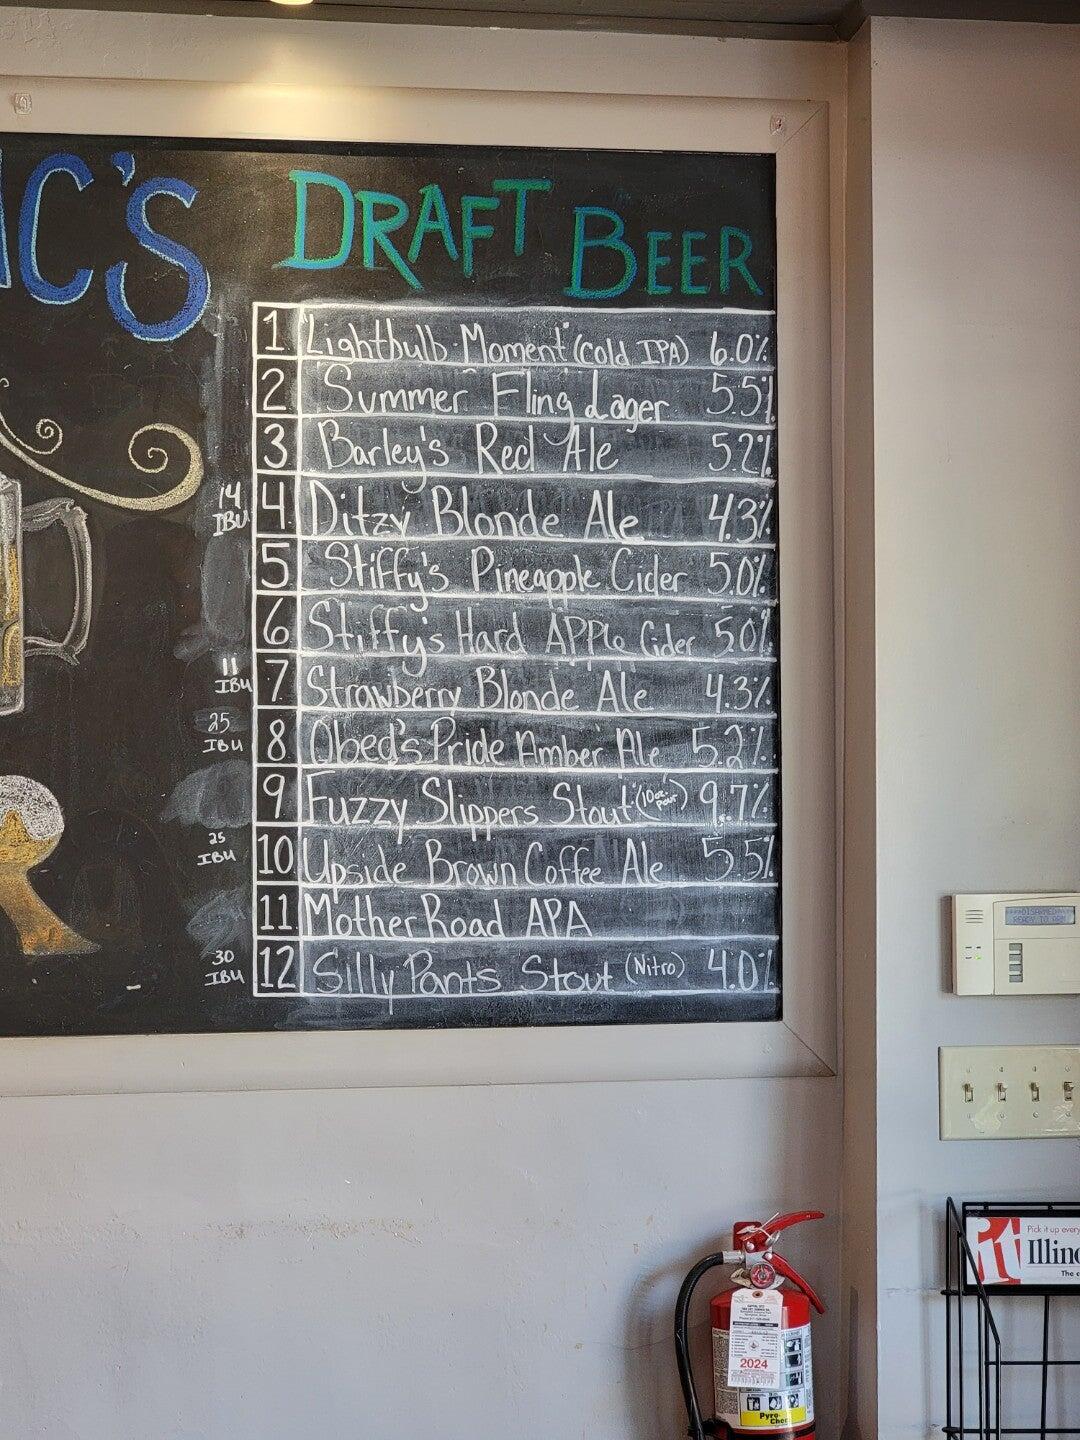 IC'S
DRAFT BEER
1 "Lightbulb Moment" (cold IPA) 6.0%
2 Summer Fling Lager 5.5%
3 Barley's Red Ale 5.2%
14 IBU 4 Ditzy Blonde Ale 4.3%
5 Stiffy's Pineapple Cider 5.0%
6 Stiffy's Hard APPle Cider 5.0%
11 IBU 7 Strawberry Blonde Ale 4.3%
25 IBU 8 Obed's Pride Amber Ale 5.2%
9 Fuzzy Slippers Stout (10oz. pour) 9.7%
25 IBU 10 Upside Brown Coffee Ale 5.5%
11 Mother Road APA
30 IBU 12 Silly Pants Stout (Nitro) 4.0%
DISARMED
READY TO ARM
it
Pick it up every
Illino
The c
2024
Pyro-
Chem